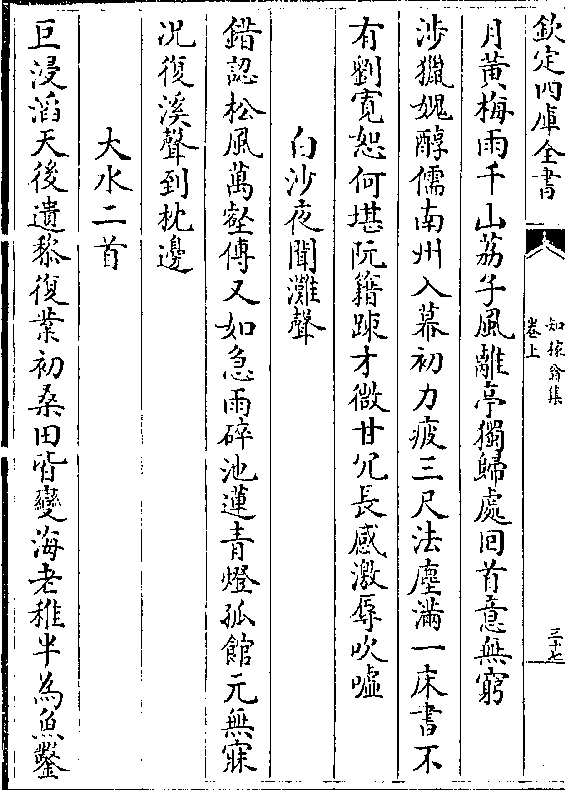 欽定四庫全書
知稼翁集
卷上
三十七
月黃梅雨千山荔子風離亭獨歸處回首意無窮
涉獵媿醇儒南州入幕初力疲三尺法塵滿一床書不
有劉寛恕何堪阮籍踈才微甘冗長感激辱吹噓
白沙夜聞灘聲
錯認松風萬壑傳又如急雨碎池蓮青燈孤館元無寐
况復溪聲到枕邊
大水二首
巨浸滔天後遺黎復業初桑田皆變海老稚半為魚鑿